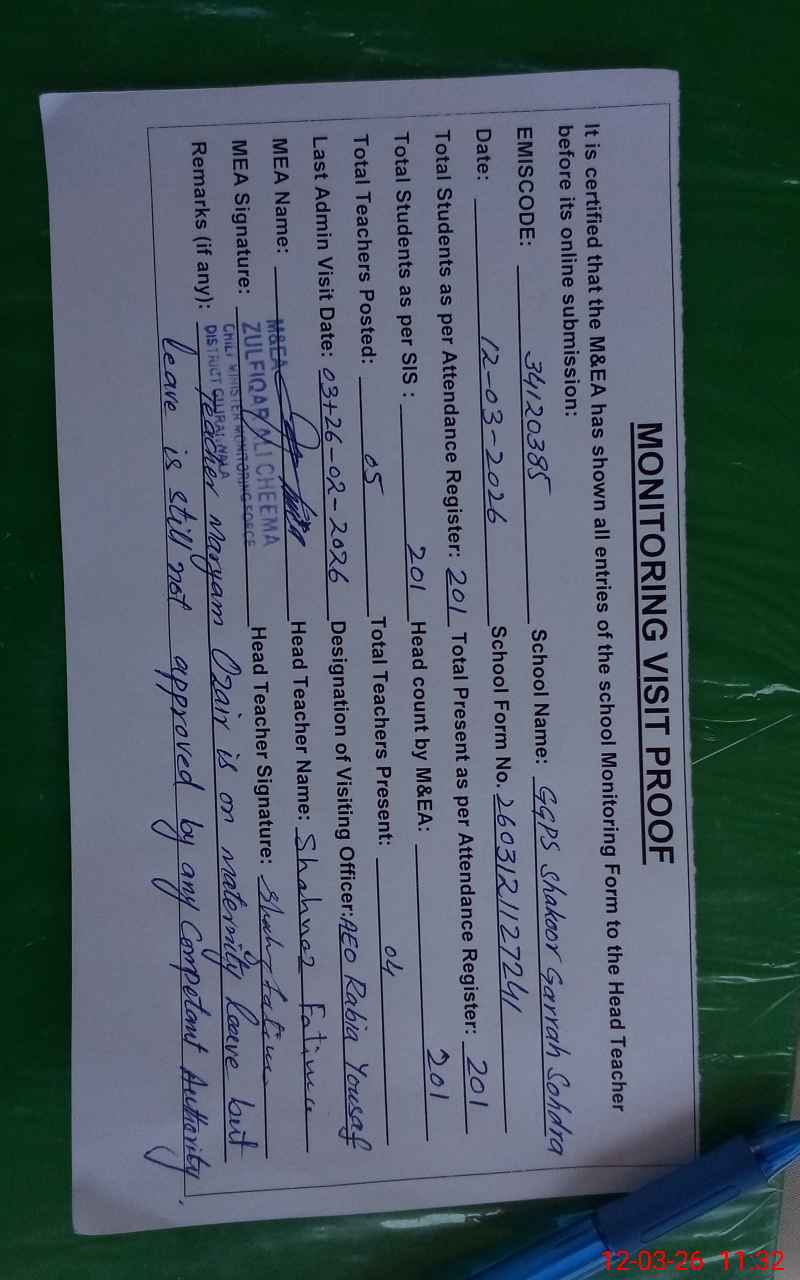 MONITORING VISIT PROOF
It is certified that the M&EA has shown all entries of the school Monitoring Form to the Head Teacher
before its online submission:
EMISCODE: 34120385 School Name: GGPS Shakoor Garrah Sohdra
Date: 12-03-2026 School Form No. 2603121127241
Total Students as per Attendance Register: 201 Total Present as per Attendance Register: 201
Total Students as per SIS : 201 Head count by M&EA: 201
Total Teachers Posted: 05 Total Teachers Present: 04
Last Admin Visit Date: 03+26-02-2026 Designation of Visiting Officer: AEO Rabia Yousaf
MEA Name: Head Teacher Name: Shahnaz Fatima
MEA Signature: Head Teacher Signature:
M&EA
ZULFIQAR ALI CHEEMA
CHIEF MINISTER MONITORING FORCE
DISTRICT GUJRANWALA
Remarks (if any): Teacher Maryam Ozair is on maternity leave but
leave is still not approved by any Competant Authority.
12-03-26 11:32